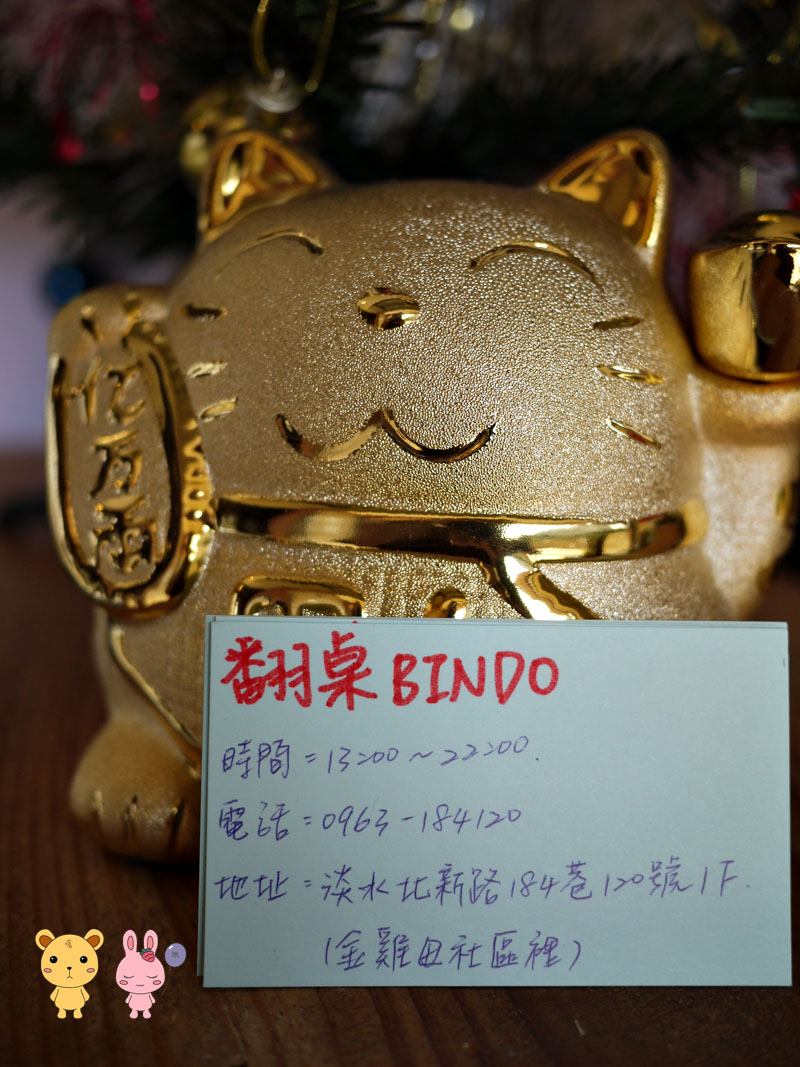 亿万両
翻桌 BINDO
時間=13:00~22:00.
電話=0963-184120
地址=淡水北新路184巷120號1F.
(金雞母社區裡)